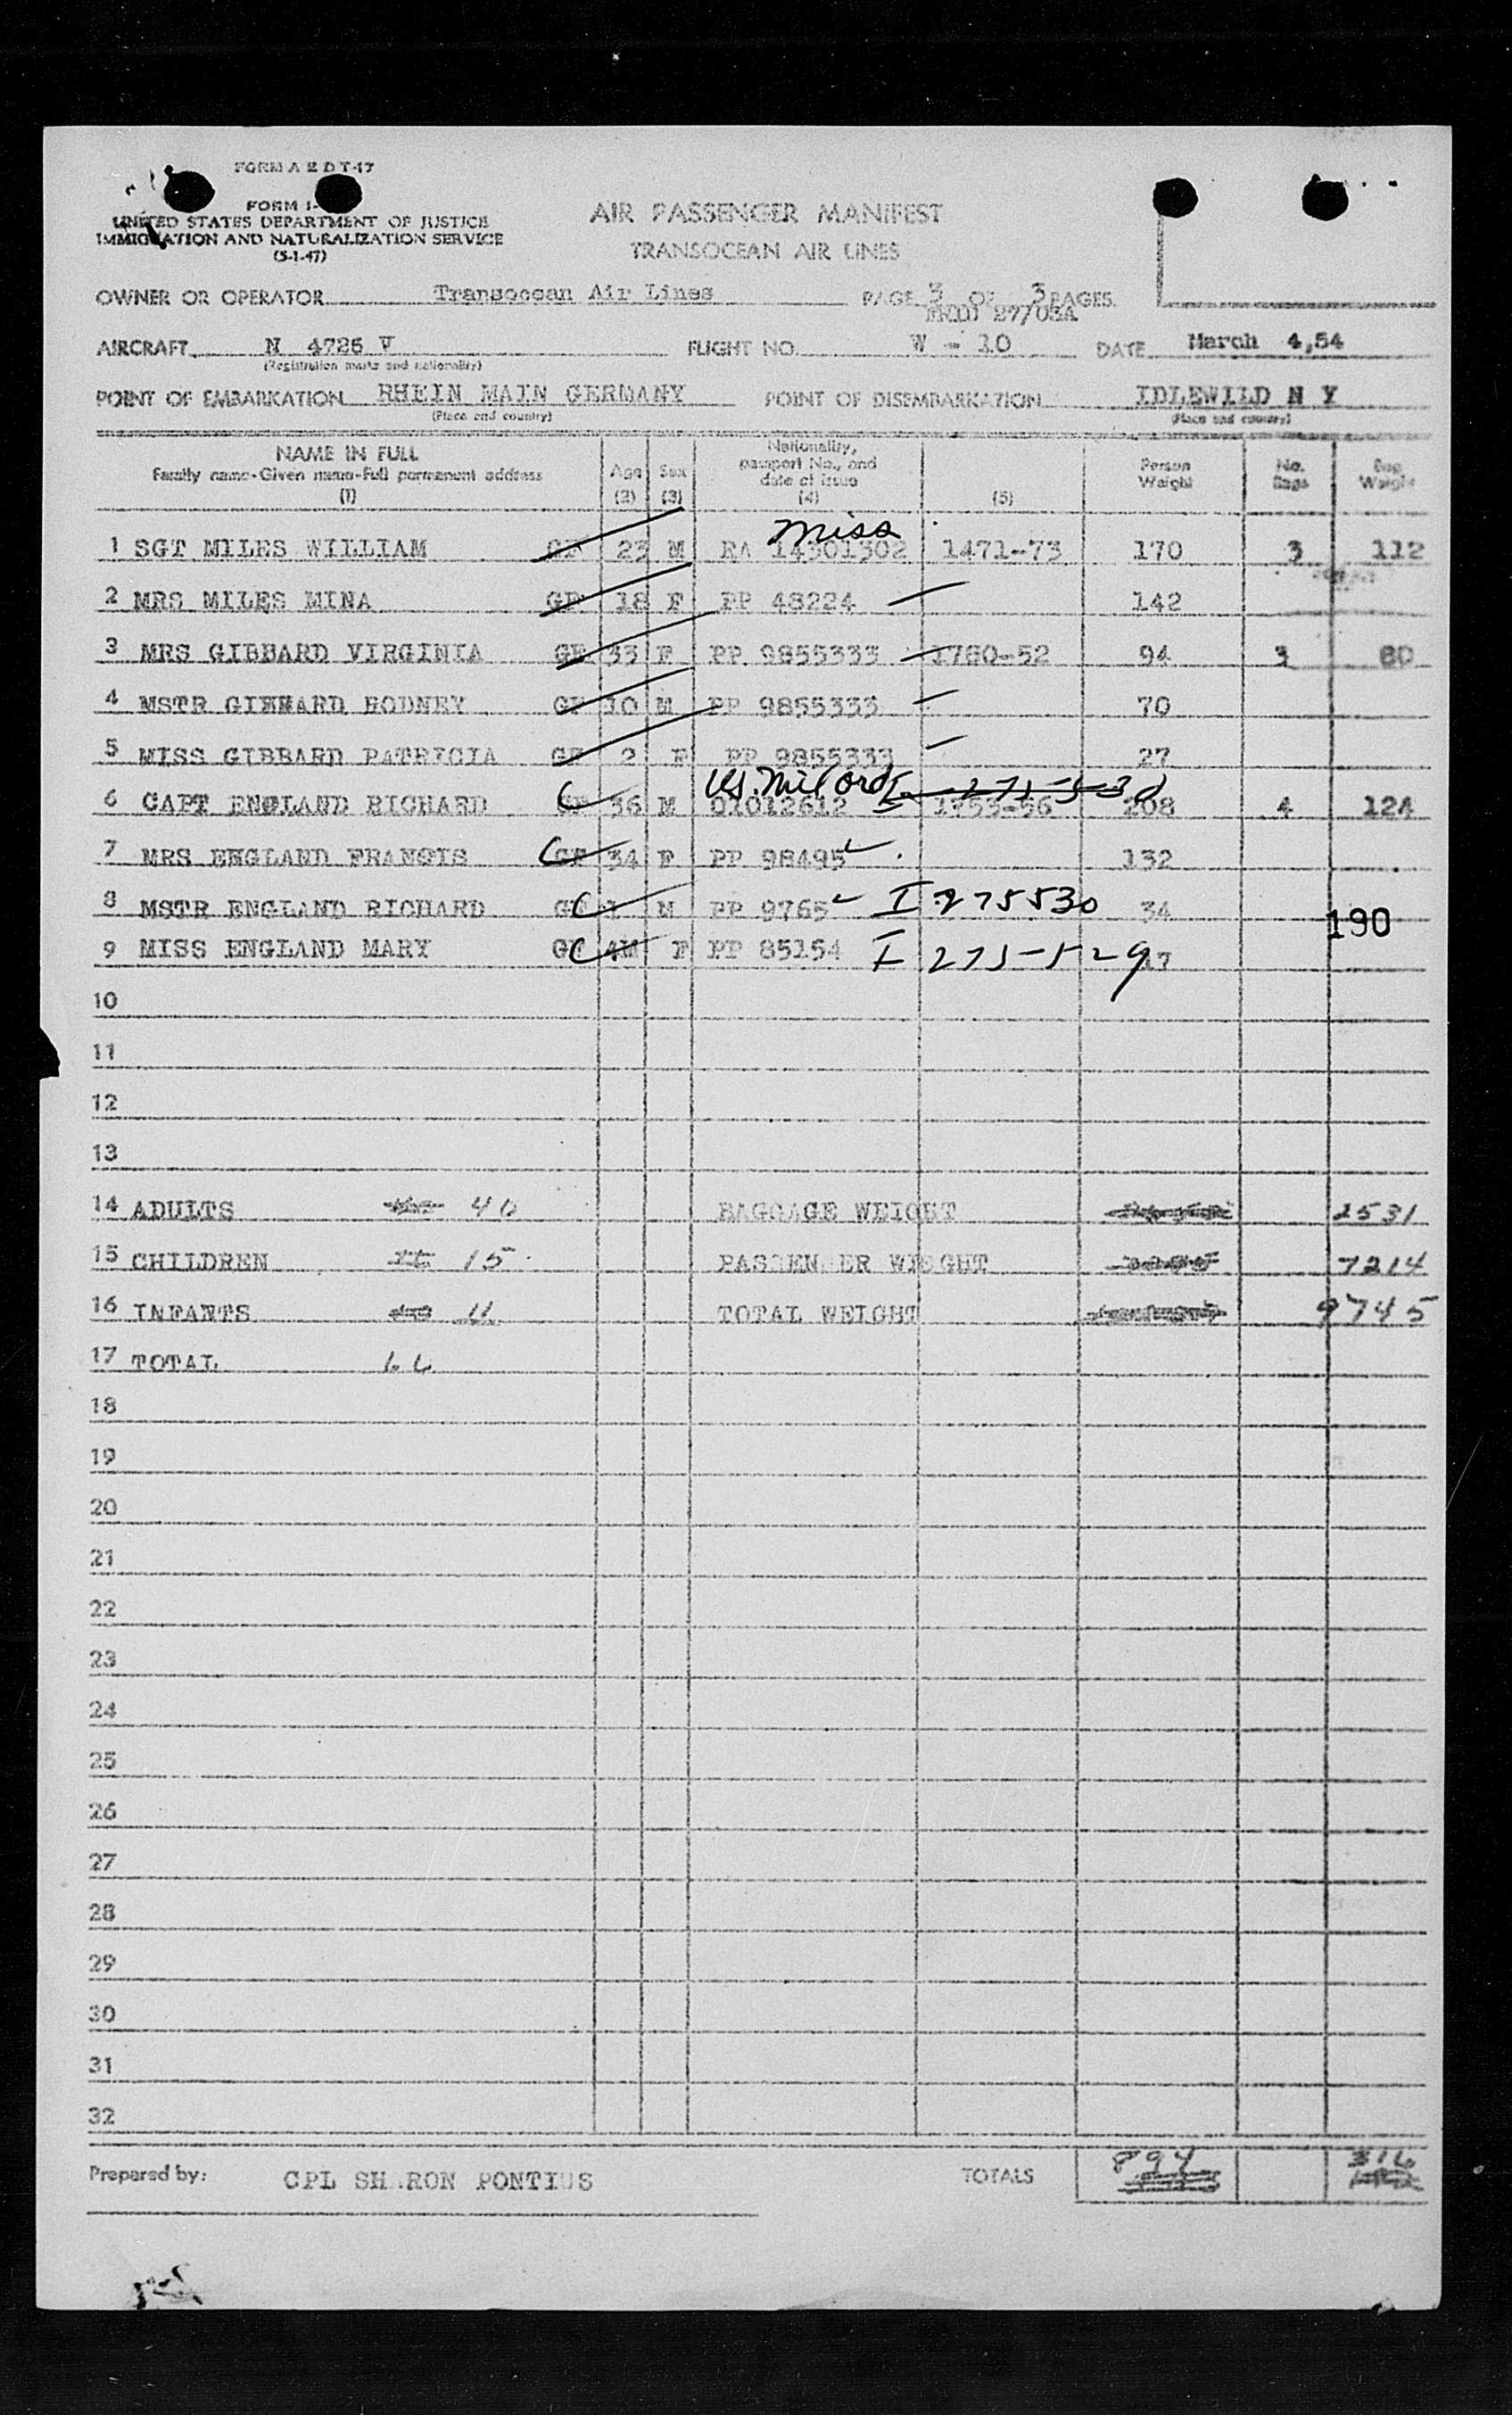 FORM A E D T-17
FORM I-
UNITED STATES DEPARTMENT OF JUSTICE
IMMIGRATION AND NATURALIZATION SERVICE
(5-1-47)
AIR PASSENGER MANIFEST
TRANSOCEAN AIR LINES
OWNER OR OPERATOR Transocean Air Lines PAGE 3 OF 3 PAGES
AIRCRAFT N 4726 V FLIGHT NO. W - 10 DATE March 4,54
(Registration marks and nationality)
POINT OF EMBARKATION RHEIN MAIN GERMANY POINT OF DISEMBARKATION IDLEWILD N Y
(Place and country) (Place and country)
NAME IN FULL
Family name-Given name-Full permanent address
(1)
Age
(2)
Sex
(3)
Nationality,
passport No., and
date of issue
(4)
(5)
Person
Weight
No.
Bags
Bag
Weight
miss
1 SGT MILES WILLIAM GF 23 M RA 14301302 1471-73 170 3 112
2 MRS MILES MINA GF 18 F PP 48224 142
3 MRS GIBBARD VIRGINIA GF 33 F PP 9855333 1780-52 94 3 80
4 MSTR GIBBARD RODNEY GF 10 M PP 9855333 70
5 MISS GIBBARD PATRICIA GF 2 F PP 9855333 27
US. Mil Ords
6 CAPT ENGLAND RICHARD GF 36 M 01012612 1353-56 208 4 124
7 MRS ENGLAND FRANCIS GF 34 F PP 98495 132
8 MSTR ENGLAND RICHARD GF 1 M PP 9765 I 275530 34
190
9 MISS ENGLAND MARY GF 4M F PP 85154 I 275-529 17
10
11
12
13
14 ADULTS 40 BAGGAGE WEIGHT 2531
15 CHILDREN 15 PASSENGER WEIGHT 7214
16 INFANTS 11 TOTAL WEIGHT 9745
17 TOTAL 66
18
19
20
21
22
23
24
25
26
27
28
29
30
31
32
Prepared by: CPL SHARON PONTIUS TOTALS 894 316